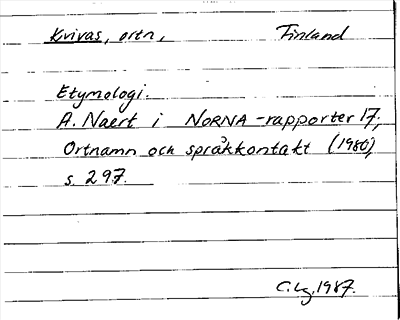 Kvivas, ortn, Finland
Etymologi.
A. Naert i NORNA-rapporter 17,
Ortnamn och språkkontakt (1980),
s. 297.
C.Lg. 1987.